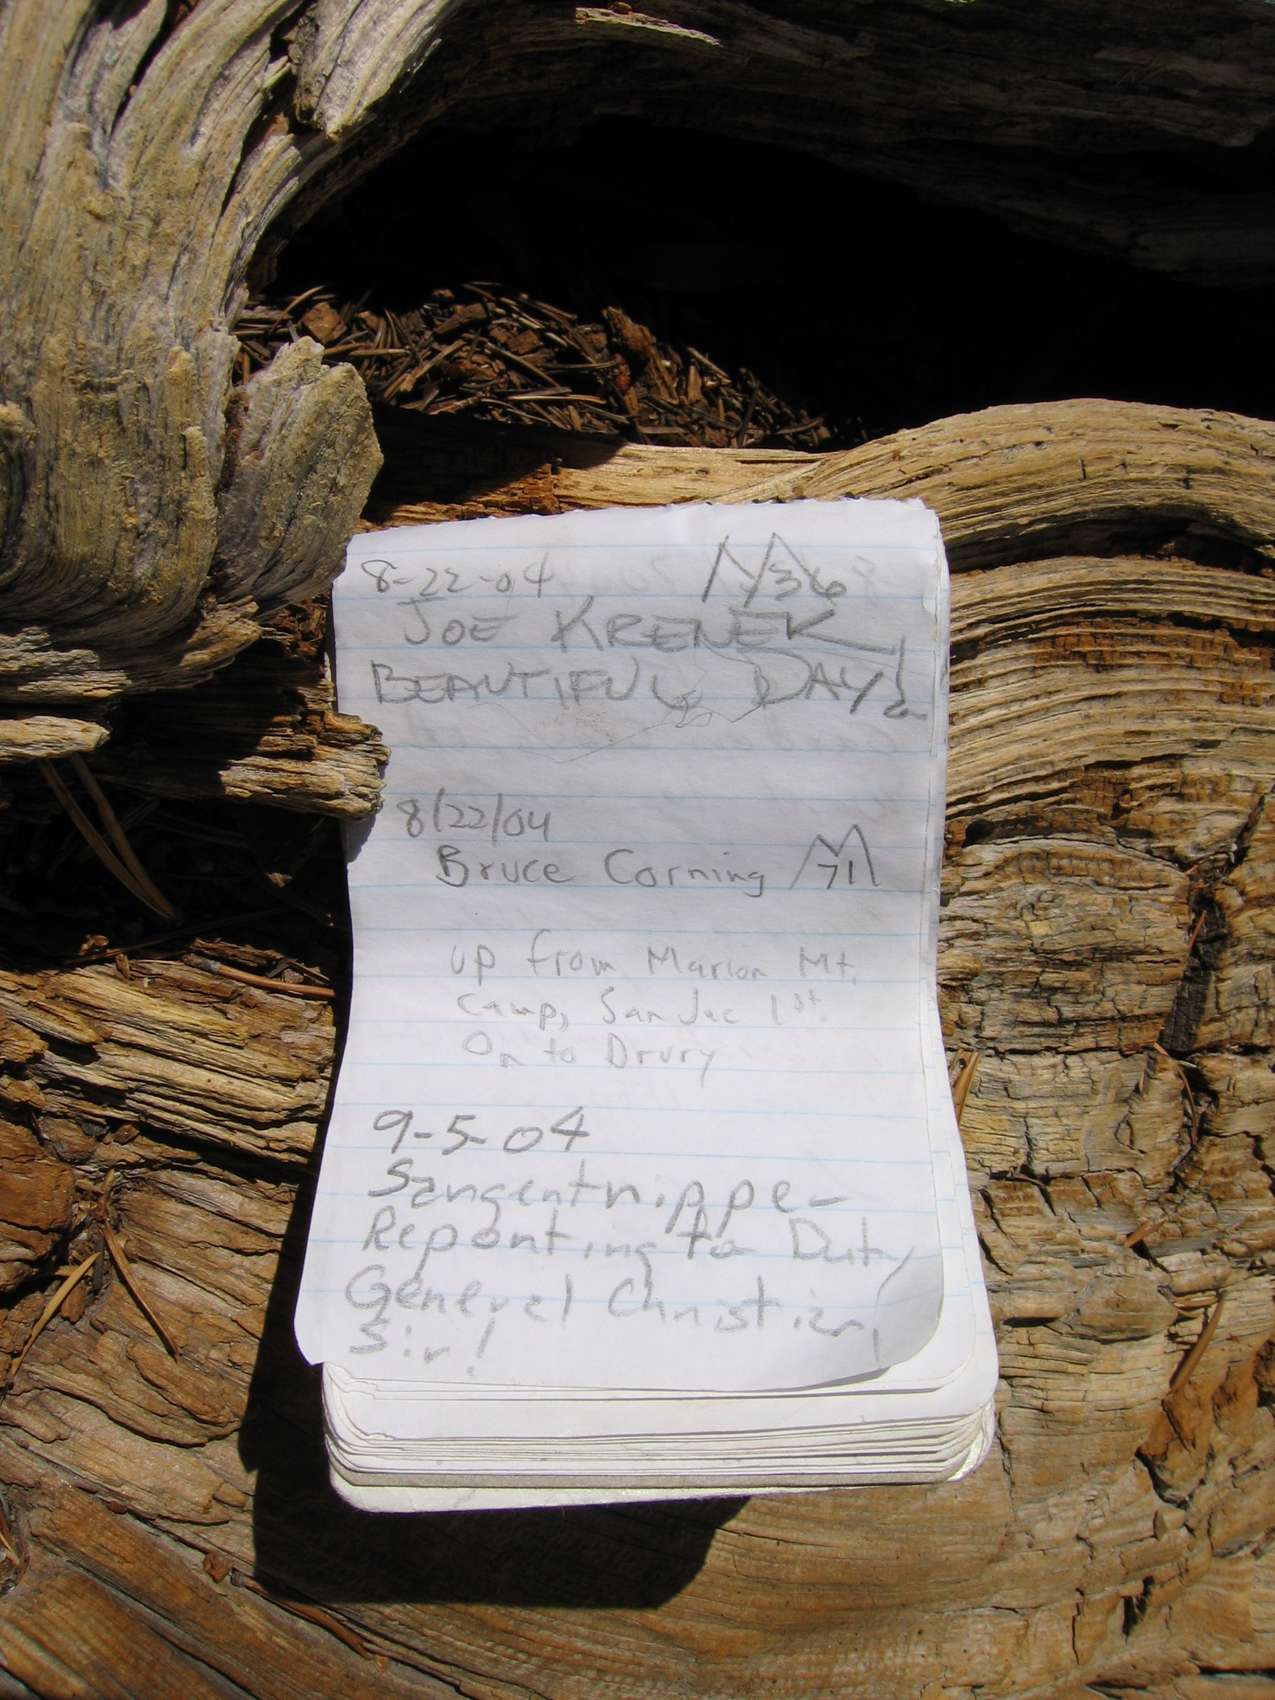 8-22-04 36
JOE KRENEK
BEAUTIFUL DAY!
8/22/04
Bruce Corning 71
up from Marion Mt.
Camp, San Jac 1st.
On to Drury
9-5-04
Reporting to Duty
General Christian,
Sir!